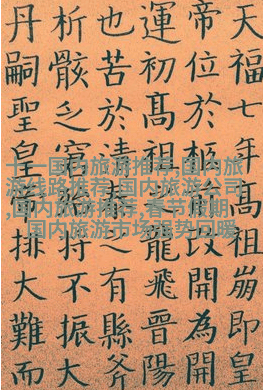 天福七年高祖崩即皇
帝位於柩改開為開
運初高祖龍飛晉陽
也苦於清之有縣斧
析骸乏將不振大
丹嗣聖皇排大難而
十一国内旅游推荐,国内旅
游线路推荐,国内旅游公司
,国内旅游推荐,春节假期
国内旅游市场强势回暖